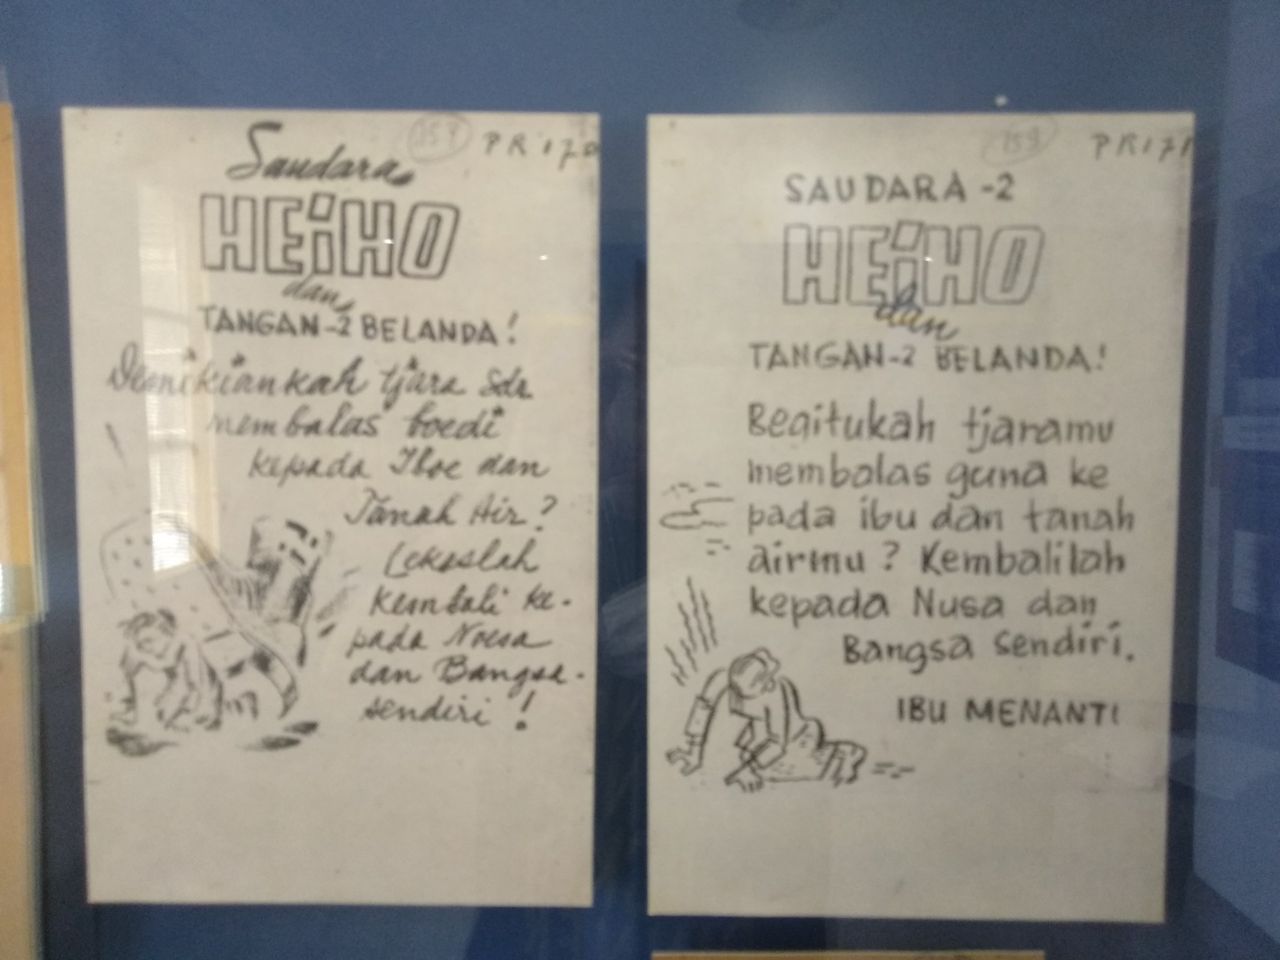 Saudara
HEiHO
dan
TANGAN-2 BELANDA!
Demikiankah tjara Sdr
membalas boedi
kepada Iboe dan
Tanah Air?
Lekaslah
kembali ke-
pada Noesa
dan Bangsa-
sendiri!
PR 171
SAUDARA-2
HEiHO
dan
TANGAN-2 BELANDA!
Begitukah tjaramu
membalas guna ke
pada ibu dan tanah
airmu? Kembalilah
kepada Nusa dan
Bangsa sendiri.
IBU MENANTI